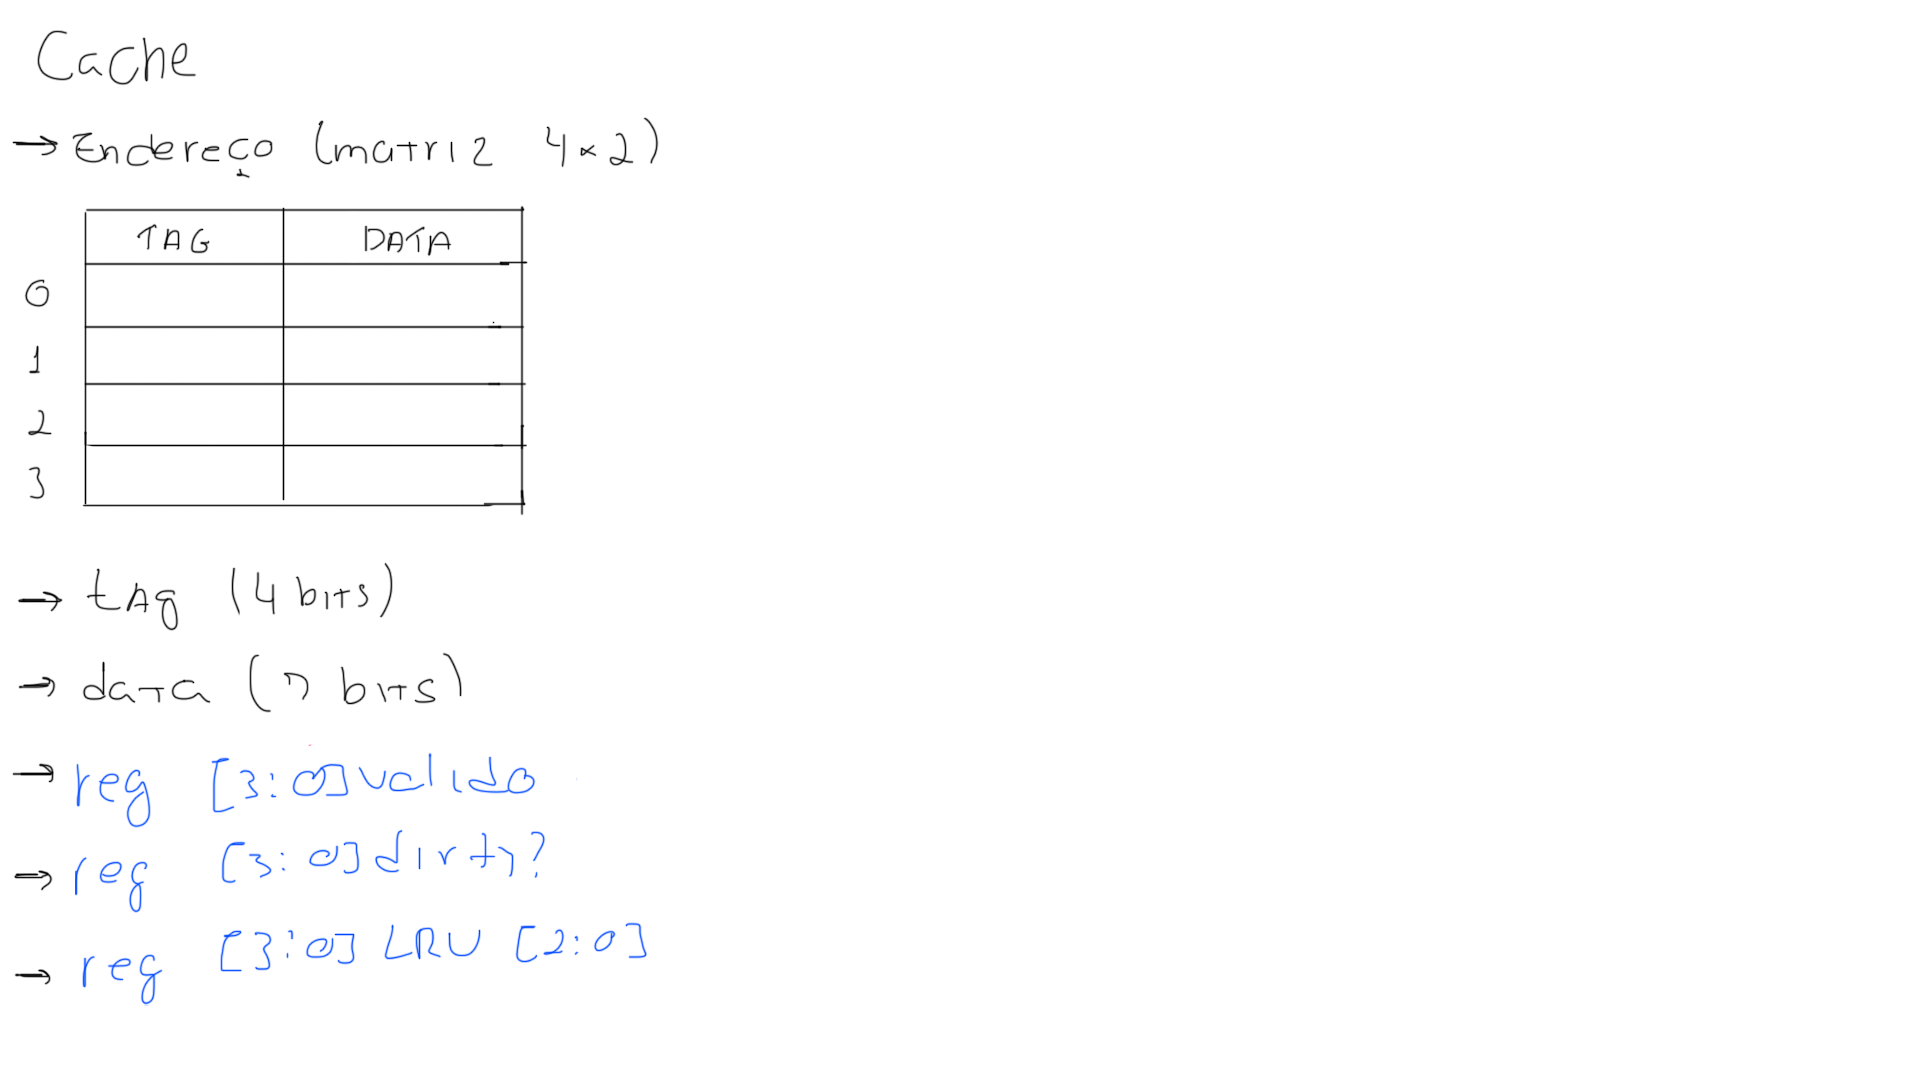 Cache
→ Endereço (matriz 4x2)
TAG DATA
0
1
2
3
→ tAg (4 bits)
→ data (7 bits)
→ reg [3:0] valido
→ reg [3:0] dirty?
→ reg [3:0] LRU [2:0]